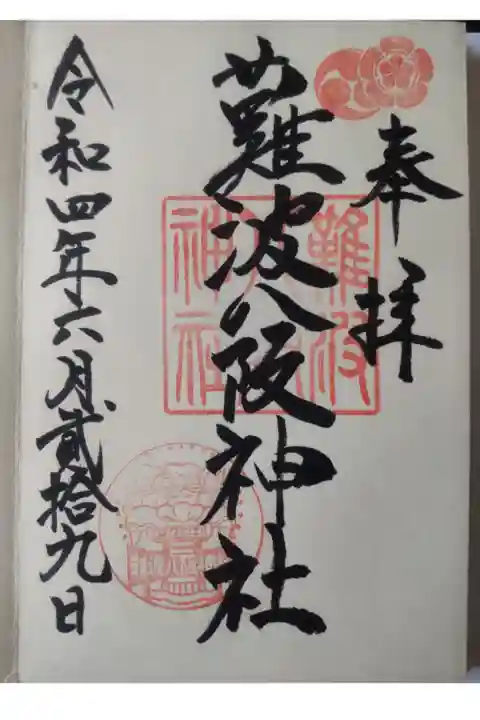 奉拝
難波八阪神社
令和四年六月貳拾九日
難波八阪神社